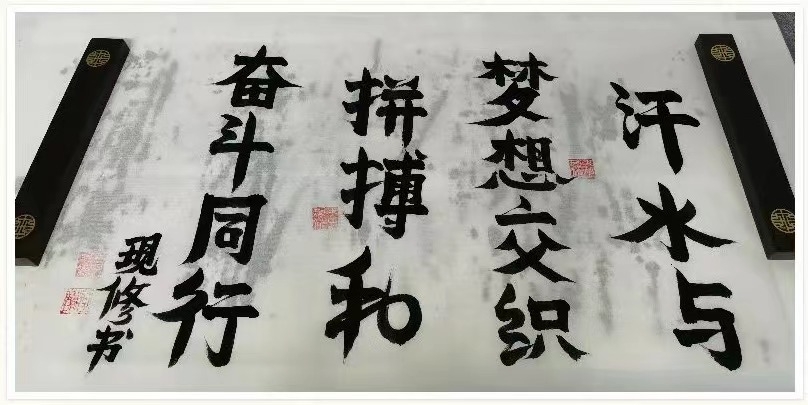 汗水与
梦想交织
拼搏和
奋斗同行
现修书